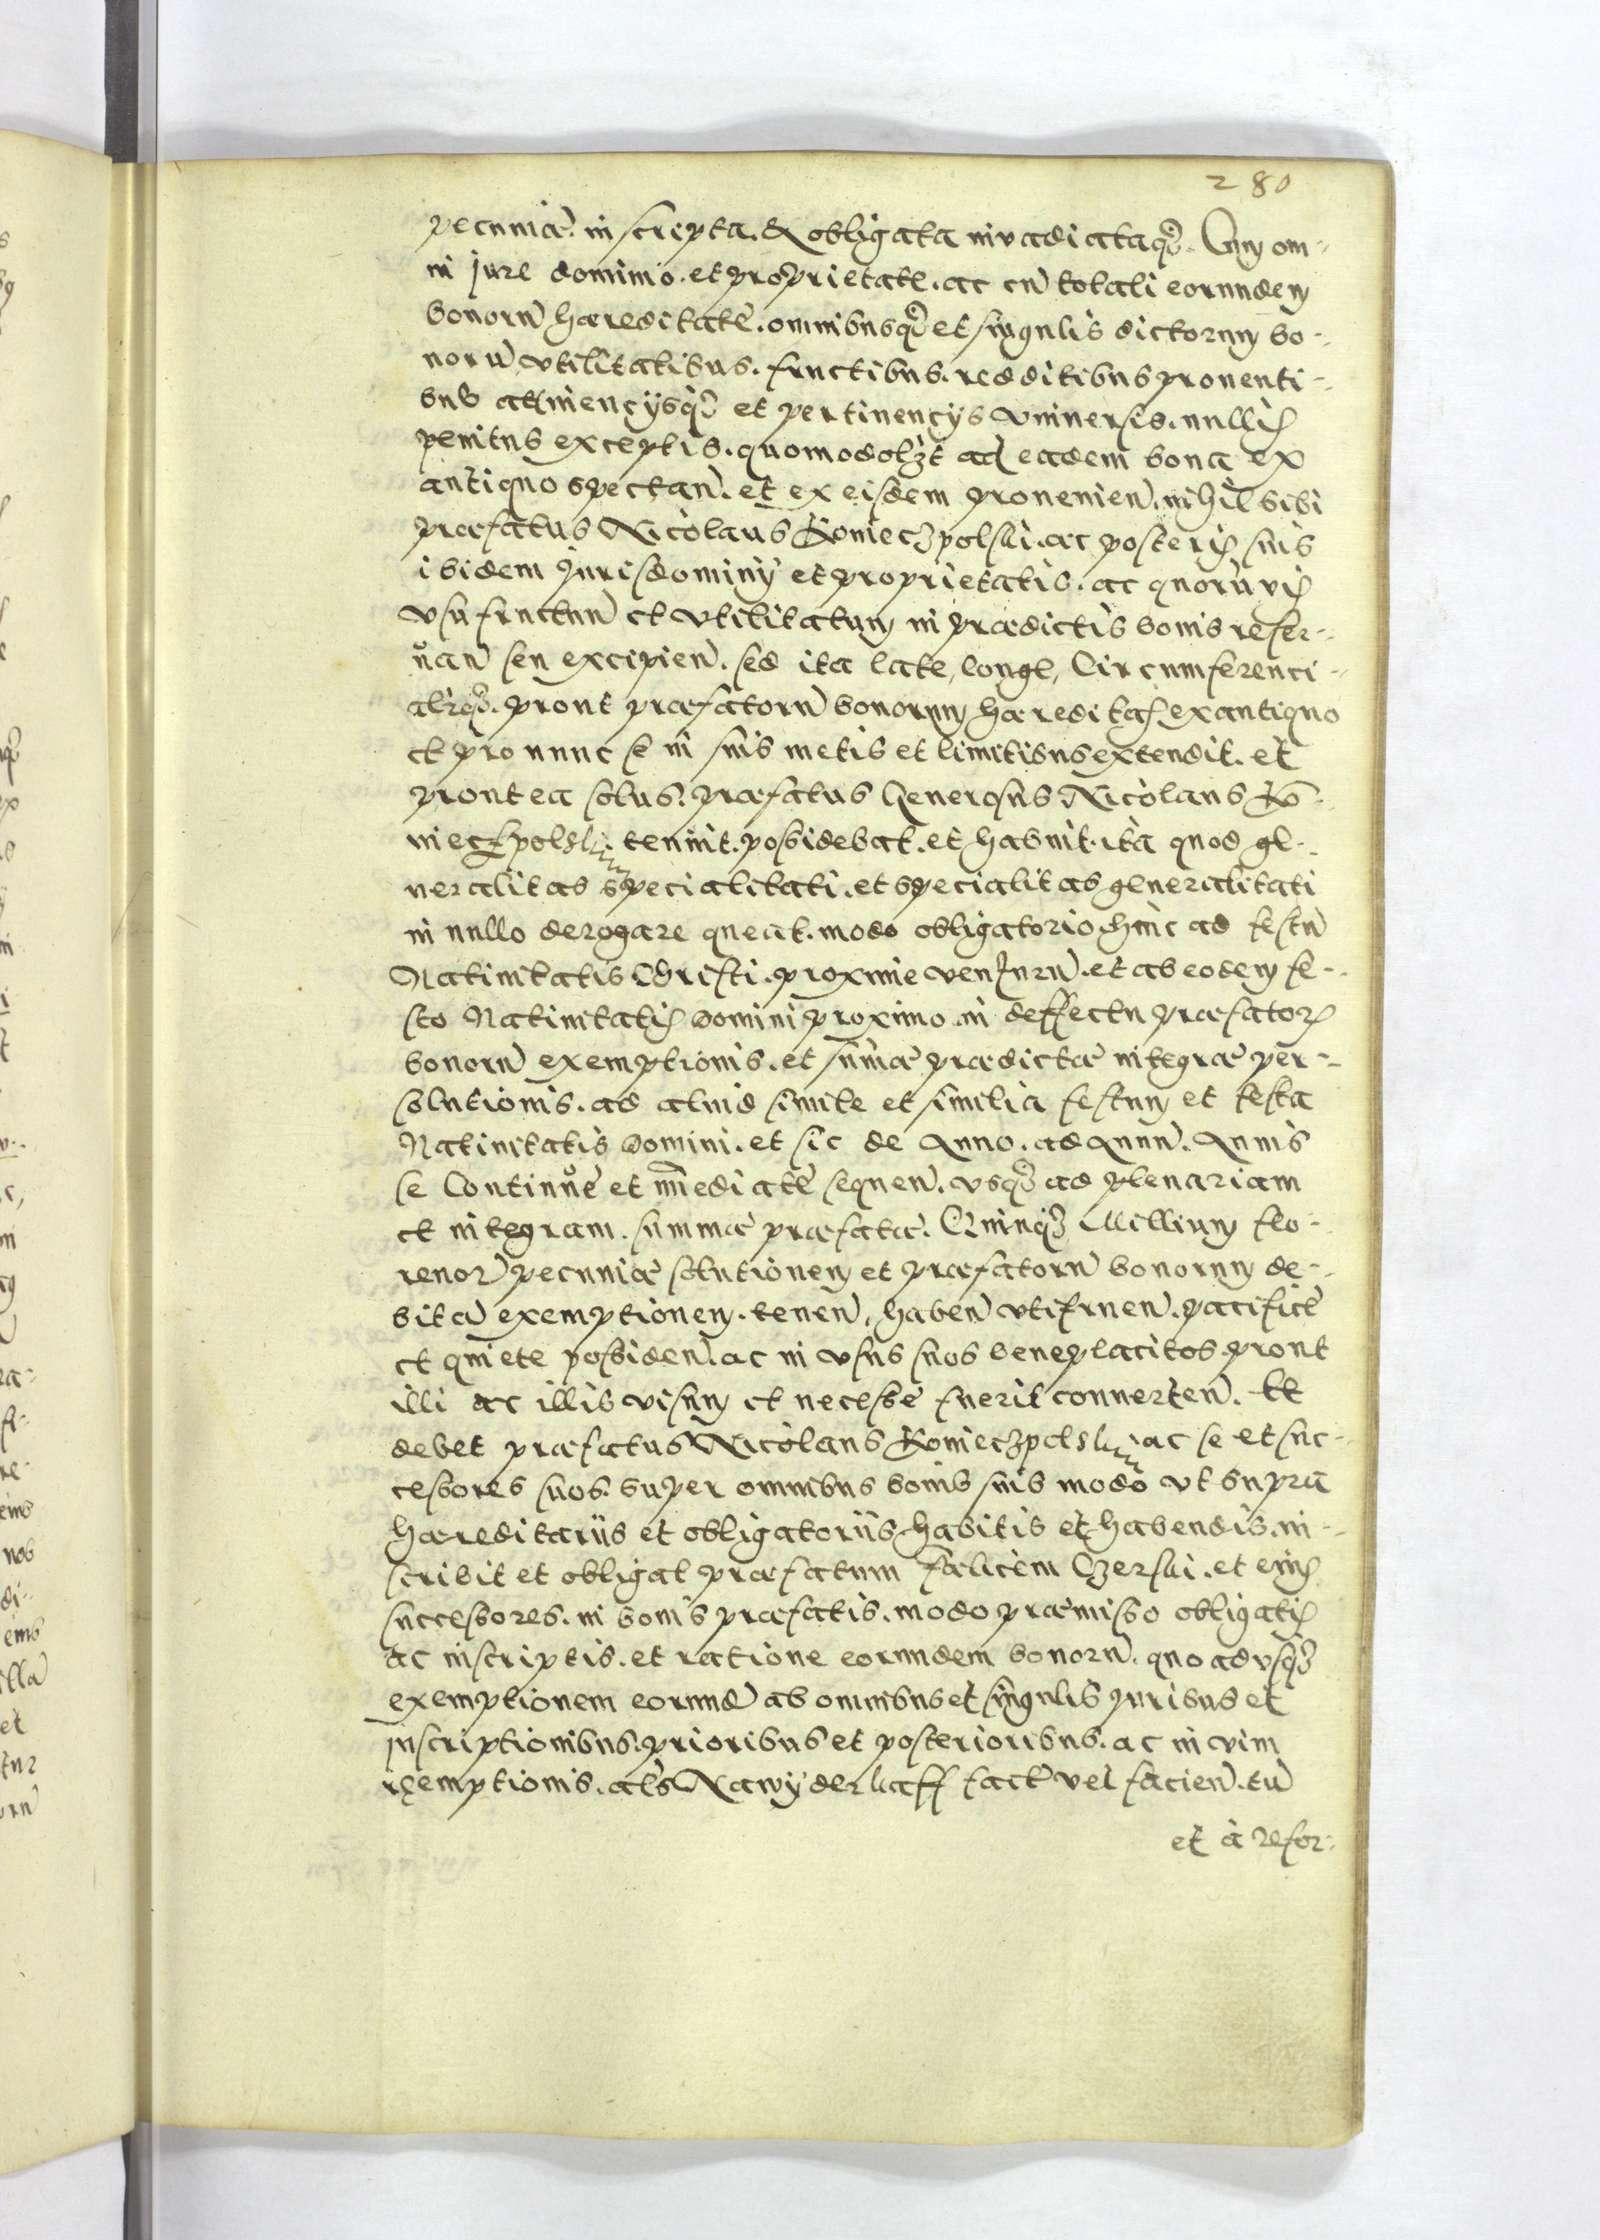 280
pecuniæ. inscripta. & obligata invadiataqȝ. Cum om-
ni jure dominio. et proprietate. ac cū totali eorundem
bonorū hæreditate. omnibusqȝ et singulis dictorum bo-
norū utilitatibus. fructibus. redditibus proventi-
bus attinencÿsqȝ et pertinencÿs universis. nullis
penitus exceptis. quomodolȝt ad eadem bona ex
antiquo spectan̄. et ex eisdem provenien̄. nihil sibi
præfatus Nicolaus Koniecȝpolski. ac posteris suis
ibidem Juris dominÿ et proprietatis. ac quorūvis
usufructuū et utilitatum in prædictis bonis reser-
van̄ seu excipien̄. sed ita late, longe, Circumferenci-
aliqȝ. prout præfatorū bonorum hæreditas ex antiquo
et pro nunc se in suis metis et limitibus extendit. et
prout ea solus. præfatus Generosus Nicolaus Ko-
niecȝpolski. tenuit. possidebat. et habuit. ità quod ge-
neralitas specialitati. et specialitas generalitati
in nullo derogare queat. modo obligatorio hinc ad festū
Nativitatis Christi. proxime venturū. et ab eodem fe-
sto Nativitatis Domini proximo. in deffectu præfator̄
bonorū exemptionis. et sum̄æ prædictæ integræ per-
solutionis. ad aliud simile et similia festum et festa
Nativitatis Domini. et sic de Anno. ad Annū. Annis
se Continuè et im̄ediatè sequen̄. usqȝ ad plenariam
et integram. summæ præfatæ. Quinqȝ Millium flo-
renor̄ pecuniæ solutionem et præfatorū bonorum de-
bitā exemptionem. tenen̄, haben̄ utifruen̄. pacificè
et quiete possiden̄. ac in usus suos beneplacitos prout
illi ac illis visum et necesse fuerit converten̄. Et
debet præfatus Nicolaus Koniecȝpolski ac se et suc-
cessores suos. super omnibus bonis suis modo ut supra
hæreditariis et obligatoriis habitis et habendis. in-
scribit et obligat præfatum Fœlicem Cȝerski. et eius
successores. in bonis præfatis. modo præmisso obligatis
ac inscriptis. et ratione eorundem bonorū. quo ad usqȝ
exemptionem eorund̄ ab omnibus et singulis Juribus et
Inscriptionibus. prioribus et posterioribus. ac in vim
reemptionis. al̄s Na wÿderkaff fact̄ vel facien̄. tū
et à refor-